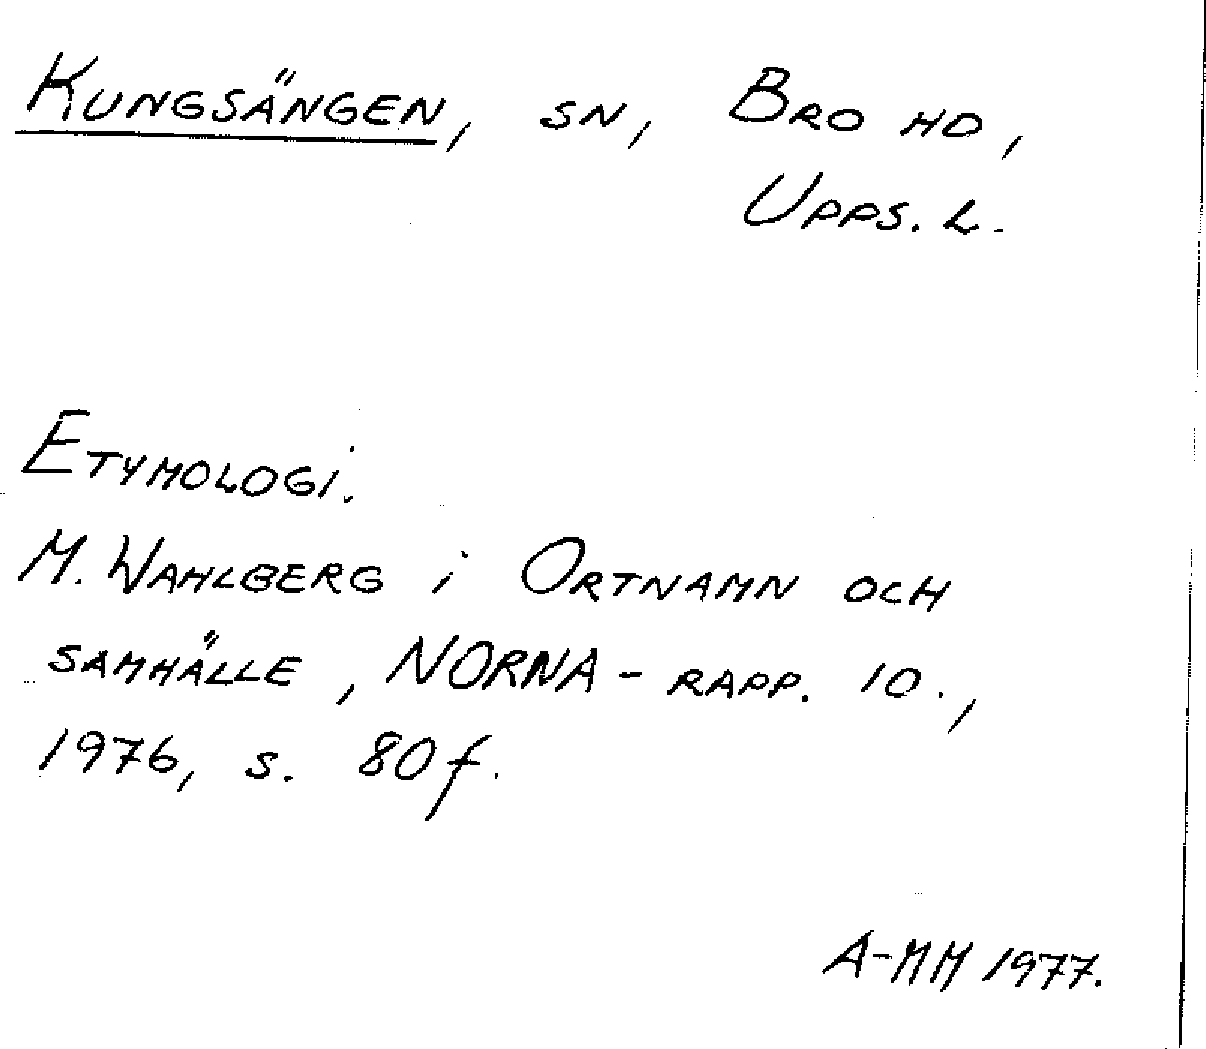 Kungsängen, sn, Bro hd,
Upps. L.
Etymologi.
M. Wahlberg i Ortnamn och
samhälle, NORNA-rapp. 10.,
1976, s. 80f.
A-MM 1977.